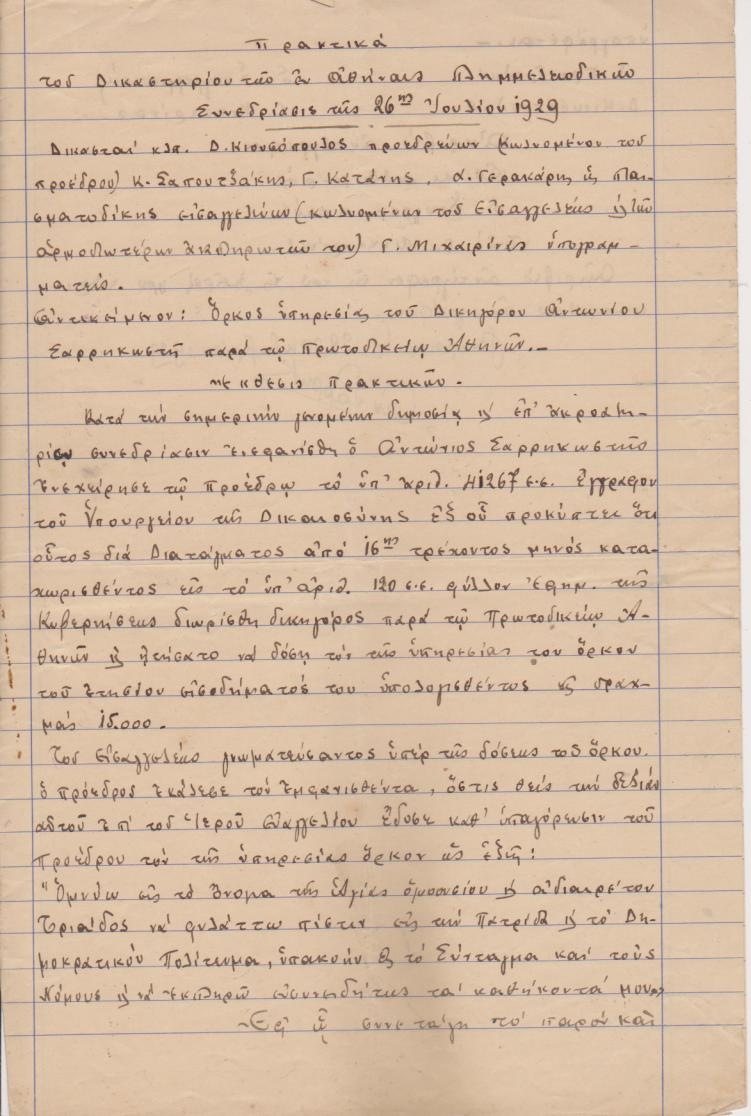 Πρακτικά
τοῦ Δικαστηρίου τῶν ἐν Ἀθήναις Πλημμελειοδικῶν
Συνεδρίασις τῆς 26ης Ἰουλίου 1929
Δικασταί κλπ. Δ. Κιουσόπουλος προεδρεύων (κωλυομένου τοῦ
προέδρου) Κ. Σαπουτζάκης, Γ. Κατάνης, Α. Γερακάρης ὡς Πται-
σματοδίκης εἰσαγγελεύων (κωλυομένων τοῦ Εἰσαγγελέως κ τῶν
ἁρμοδιωτέρων ἀναπληρωτῶν του) Γ. Μιχαιρίνας ὑπογραμ-
ματεύς.
Ἀντικείμενον: Ὅρκος ὑπηρεσίας τοῦ Δικηγόρου Ἀντωνίου
Σαρρηκωστῆ παρά τῷ Πρωτοδικείῳ Ἀθηνῶν.-
Ἔκθεσις πρακτικῶν.
Κατά τήν σημερινήν γενομένην δημοσίᾳ κ ἐπ' ἀκροατη-
ρίου συνεδρίασιν ἐνεφανίσθη ὁ Ἀντώνιος Σαρρηκωστῆς
ἐνεχείρησε τῷ προέδρῳ τό ὑπ' ἀριθ. 41267 ε.ε. ἔγγραφον
τοῦ Ὑπουργείου τῆς Δικαιοσύνης ἐξ οὗ προκύπτει ὅτι
οὗτος διά Διατάγματος ἀπό 16ης τρέχοντος μηνός κατα-
χωρισθέντος εἰς τό ὑπ' ἀριθ. 120 ε.ε. φύλλον Ἐφημ. τῆς
Κυβερνήσεως διωρίσθη δικηγόρος παρά τῷ Πρωτοδικείῳ Ἀ-
θηνῶν κ ᾐτήσατο νά δόσῃ τόν τῆς ὑπηρεσίας του ὅρκον
τοῦ ἐτησίου εἰσοδήματός του ὑπολογισθέντος εἰς δραχ-
μάς 15.000.
Τοῦ Εἰσαγγελέως γνωματεύσαντος ὑπέρ τῆς δόσεως τοῦ ὅρκου.
ὁ πρόεδρος ἐκάλεσε τόν ἐμφανισθέντα, ὅστις θείς τήν δεξιάν
αὐτοῦ ἐπί τοῦ Ἱεροῦ Εὐαγγελίου ἔδωσε καθ' ὑπαγόρευσιν τοῦ
Προέδρου τόν τῆς ὑπηρεσίας ὅρκον ὡς ἑξῆς:
"Ὀμνύω εἰς τό ὄνομα τῆς Ἁγίας ὁμοουσίου κ ἀδιαιρέτου
Τριάδος νά φυλάττω πίστιν εἰς τήν Πατρίδα κ τό Δη-
μοκρατικόν Πολίτευμα, ὑπακοήν εἰς τό Σύνταγμα καί τούς
Νόμους κ νά ἐκπληρῶ εὐσυνειδήτως τά καθήκοντά μου"
Ἐφ' ᾧ συνετάγη τό παρόν καί